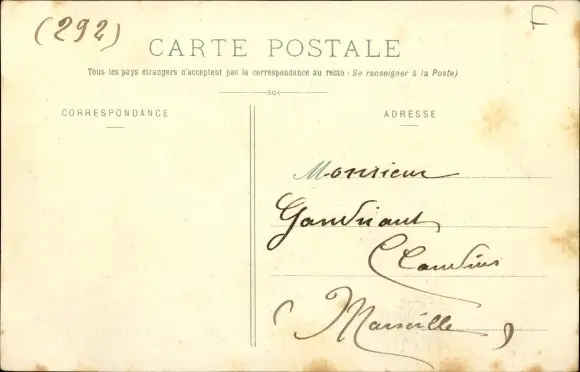 (292)
CARTE POSTALE
Tous les pays étrangers n'acceptent pas la correspondance au recto (Se renseigner à la Poste)
CORRESPONDANCE
ADRESSE
Monsieur
Claudius
(Marseille)